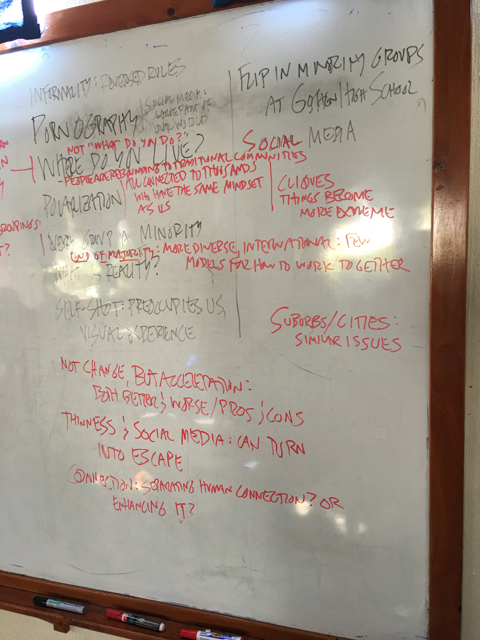 INFORMALITY: REVERSED RULES
PORNOGRAPHY
SOCIAL MEDIA:
OUR WORLD
NOT "WHAT DO YOU DO?"
WHERE DO YOU LIVE?
PEOPLE ARE RETURNING TO TRADITIONAL COMMUNITIES
ALL CONNECTED TO THOUSANDS
WHO HAVE THE SAME MINDSET
AS US
POLARIZATION
EVERY GROUP A MINORITY
END OF MAJORITY: MORE DIVERSE, INTERNATIONAL: FEW
MODELS FOR HOW TO WORK TOGETHER
WHAT IS REALITY?
SELF-SHOT: PREOCCUPIES US,
VISUAL EXPERIENCE
FLIP IN MINORITY GROUPS
AT GOSHEN HIGH SCHOOL
SOCIAL MEDIA
CLIQUES
THINGS BECOME
MORE EXTREME
SUBURBS/CITIES:
SIMILAR ISSUES
NOT CHANGE, BUT ACCELERATION:
BOTH BETTER & WORSE/PROS & CONS
THINNESS & SOCIAL MEDIA: CAN TURN
INTO ESCAPE
CONNECTION: SEPARATING HUMAN CONNECTION? OR
ENHANCING IT?